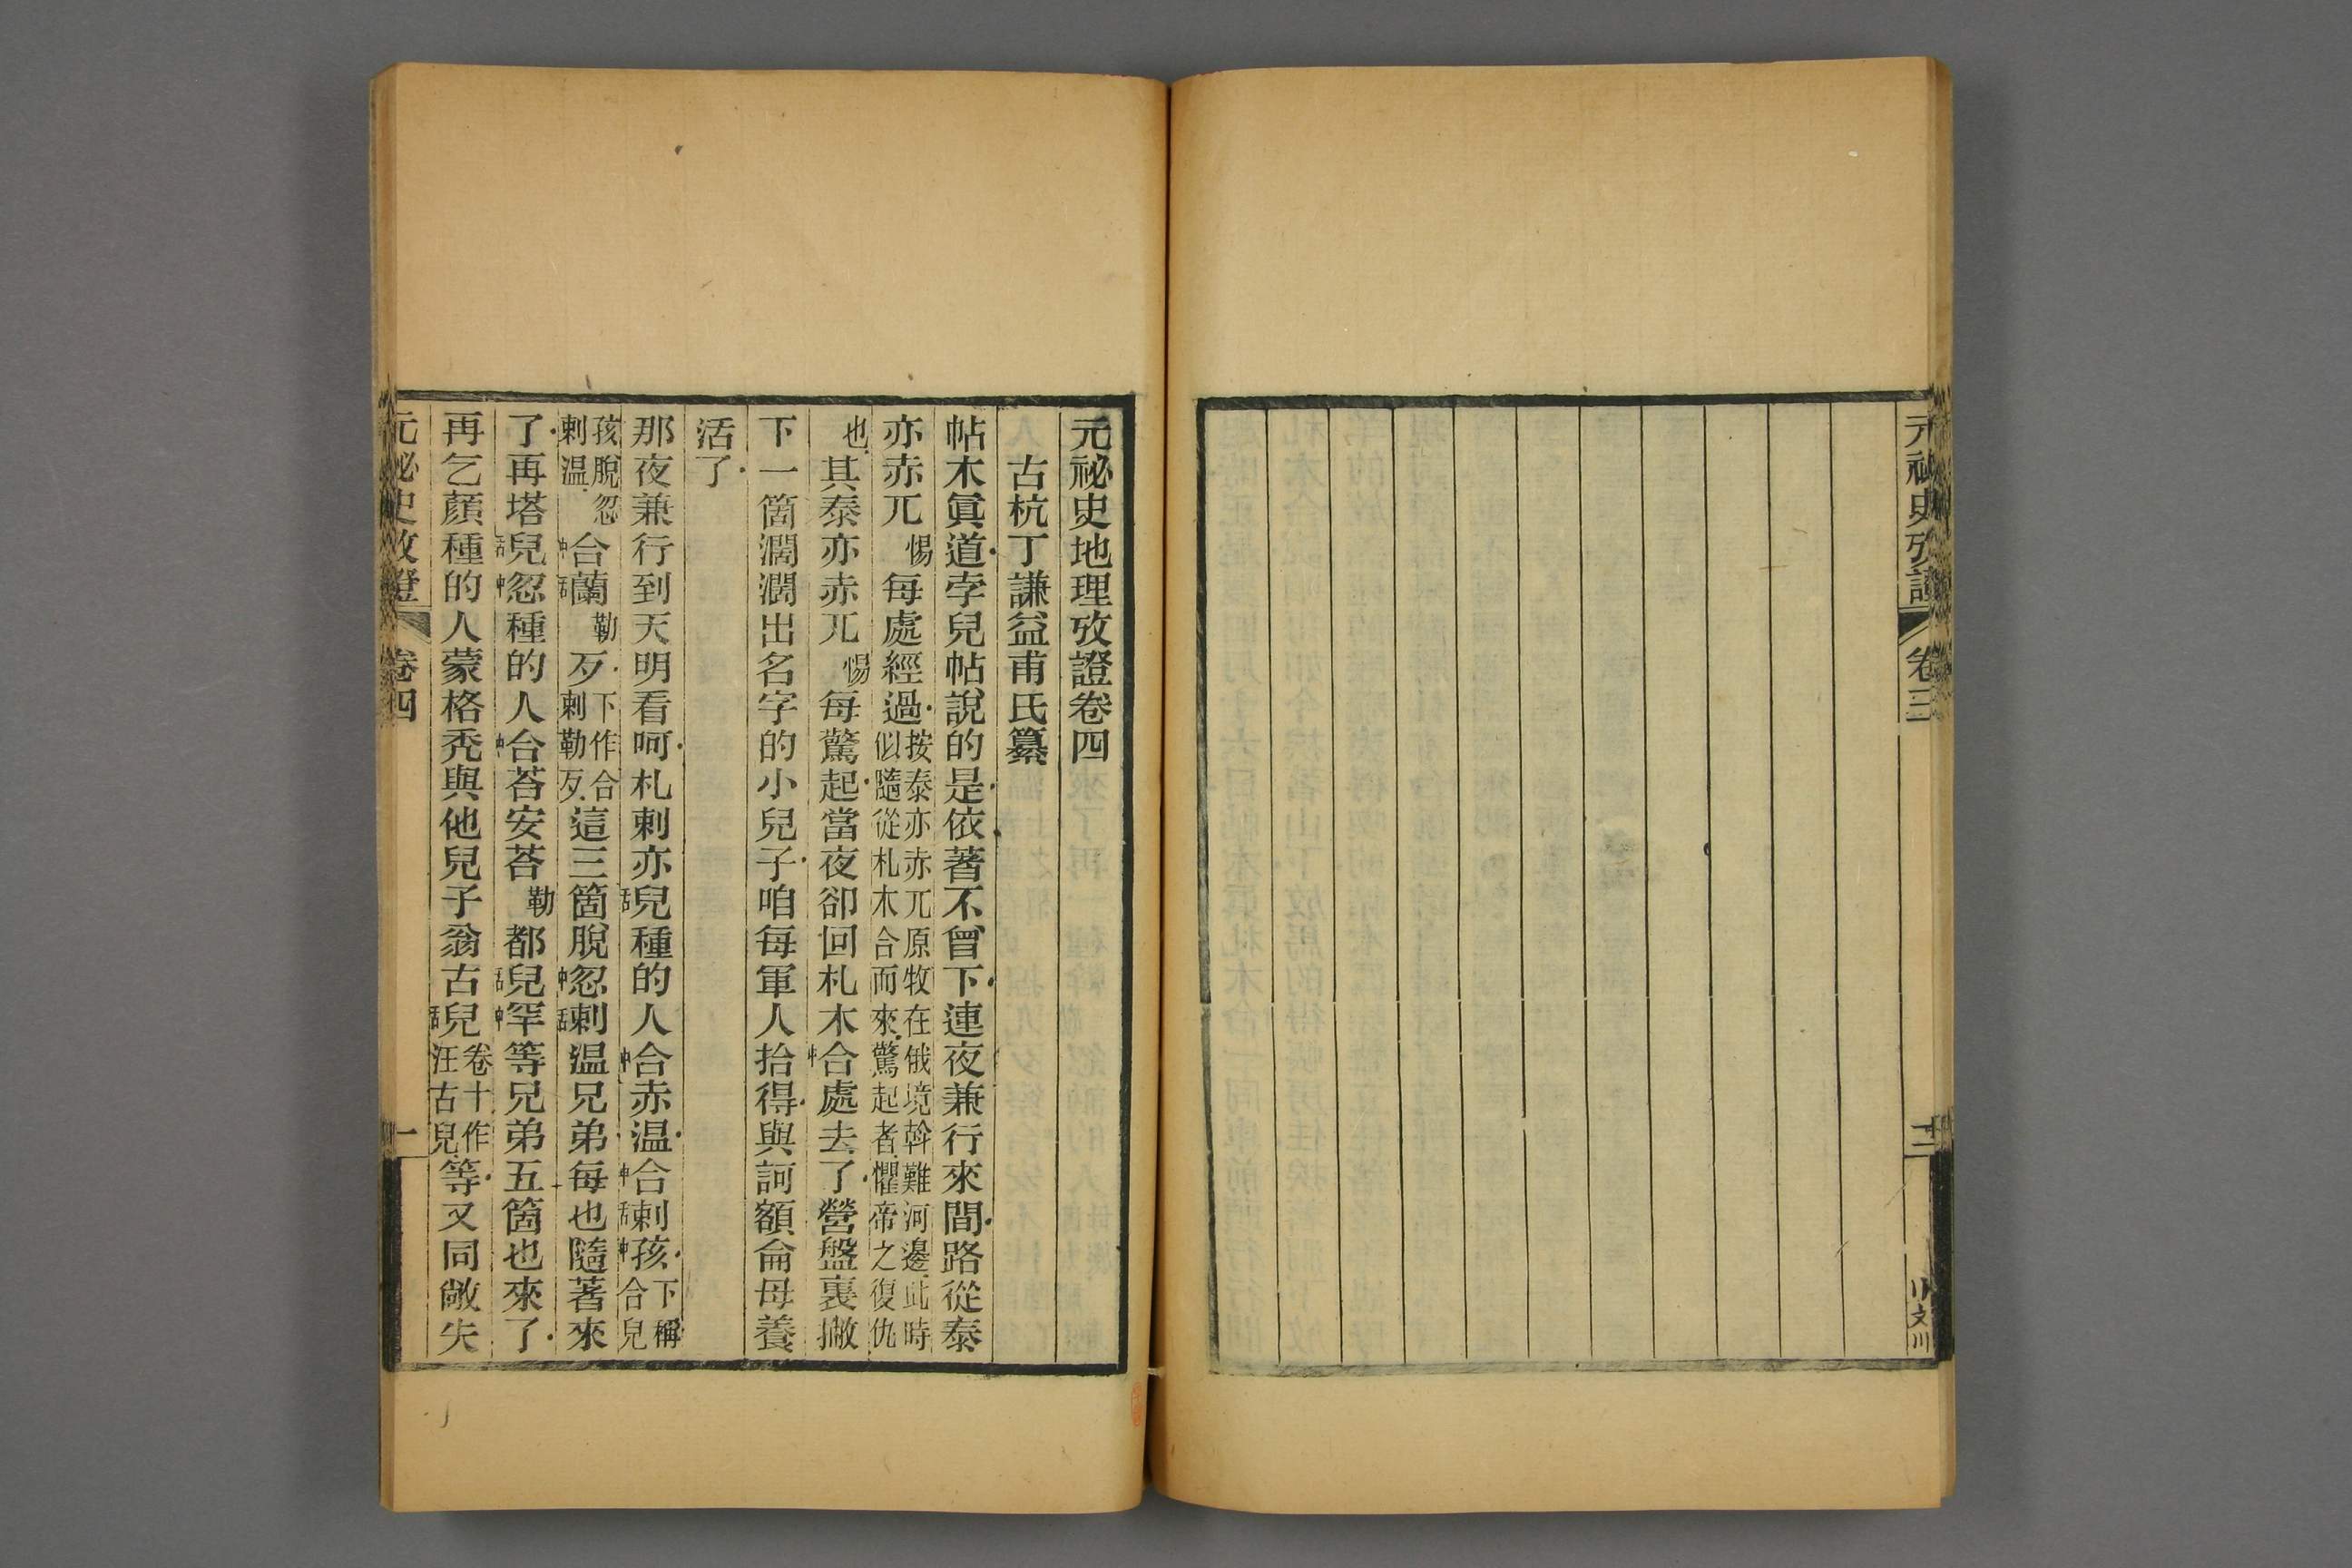 元祕史攷證
卷三
三
元祕史地理攷證卷四
古杭丁謙益甫氏纂
帖木眞道孛兒帖說的是依著不曾下連夜兼行來間路從泰
亦赤兀惕每處經過按泰亦赤兀原牧在俄境斡難河邊此時似隨從札木合而來驚起者懼帝之復仇
也其泰亦赤兀惕每驚起當夜卻回札木中合處去了營盤裏撇
下一箇濶濶出名字的小兒子咱每軍人拾得與訶額侖母養
活了
那夜兼行到天明看呵札剌亦舌兒種的人中合赤温中合舌剌中孩下稱合兒
孩脫忽剌温中合舌蘭勒歹下作合剌勒歹這三箇脫中忽舌剌温兄弟每也隨著來
了再塔舌兒中忽種的人中合荅安荅勒都舌兒中罕等兄弟五箇也來了
再乞顏種的人蒙格禿與他兒子翁古舌兒卷十作汪古兒等又同敞失
元祕史攷證
卷四
一